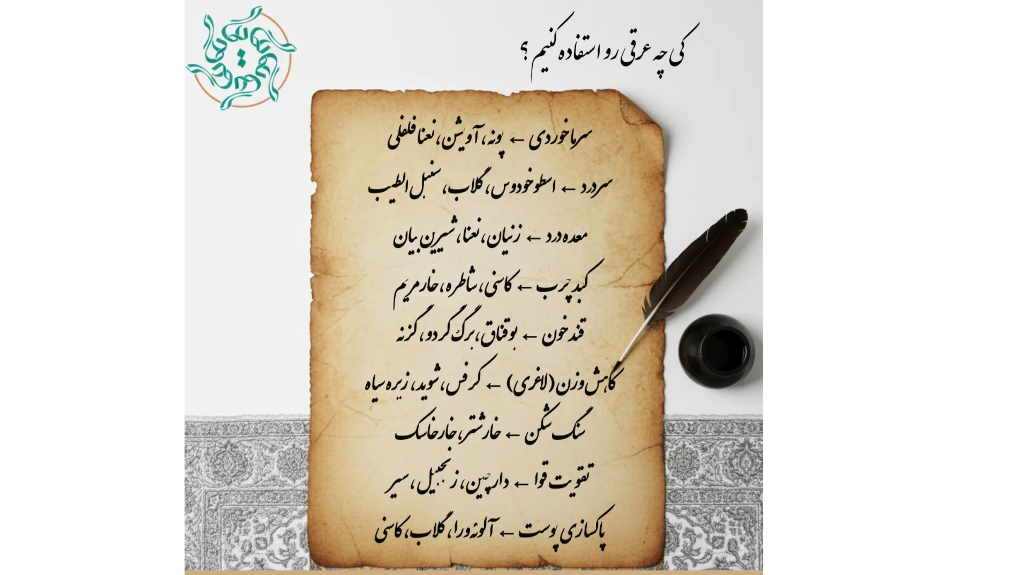 کی چه عرقی رو استفاده کنیم ؟
سرماخوردی ← پونه، آویشن، نعنا فلفلی
سردرد ← اسطوخودوس، گلاب، سنبل الطیب
معده درد ← زنیان، نعنا، شیرین بیان
کبد چرب ← کاسنی، شاطره، خارمریم
قند خون ← بوقناق، برگ گردو، گزنه
کاهش وزن (لاغری) ← کرفس، شوید، زیره سیاه
سنگ شکن ← خارشتر، خارخاسک
تقویت قوا ← دارچین، زنجبیل، سیر
پاکسازی پوست ← آلوئه‌ورا، گلاب، کاسنی